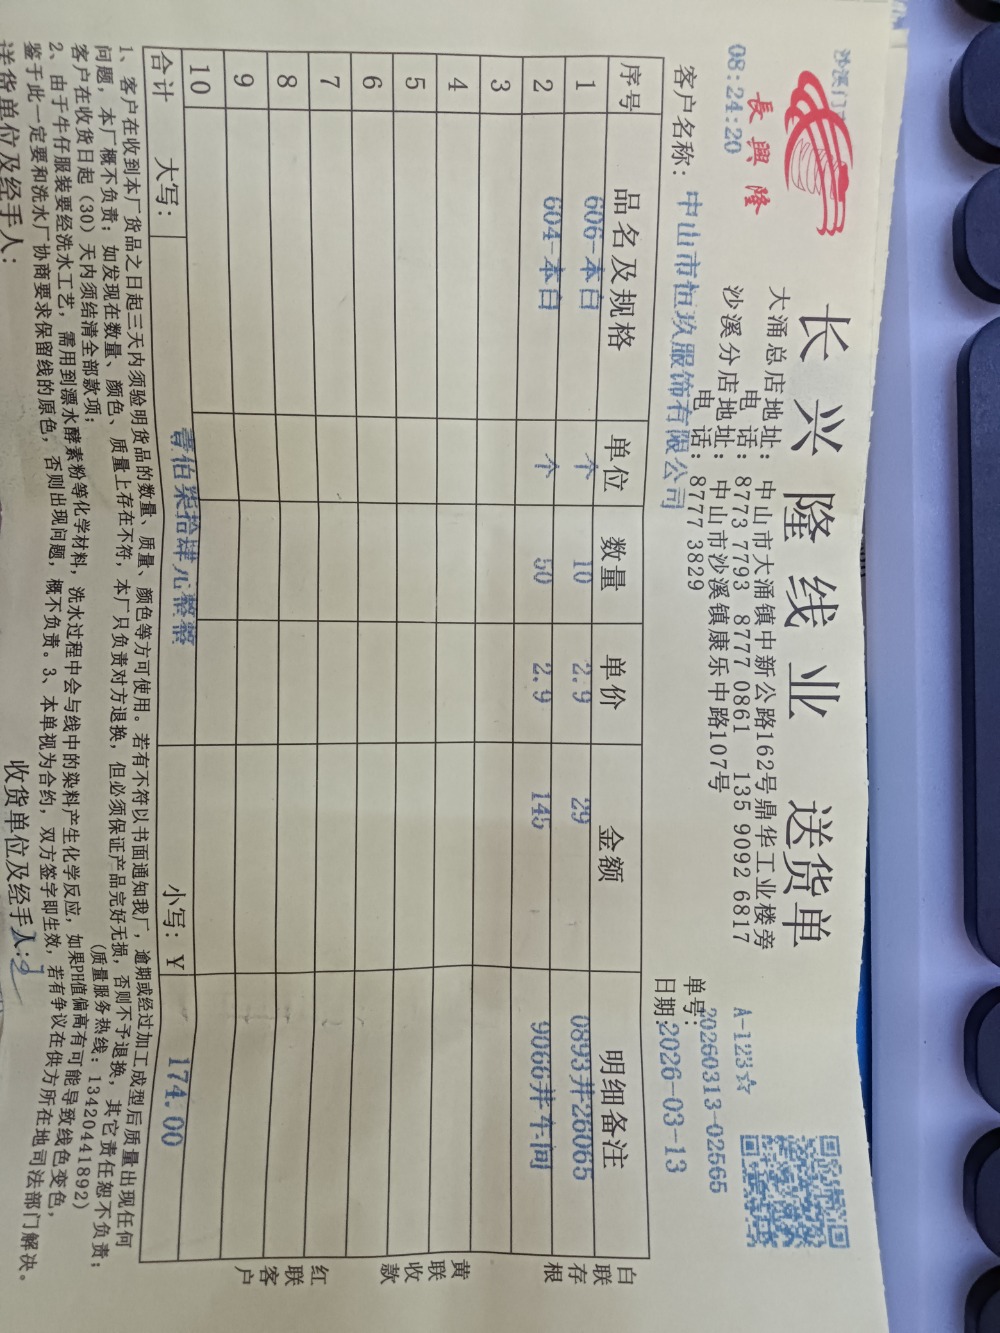 長興隆
长兴隆线业 送货单
沙溪门
08:24:20
大涌总店地址: 中山市大涌镇中新公路162号鼎华工业楼旁
电 话: 8773 7793 8777 0861 135 9092 6817
沙溪分店地址: 中山市沙溪镇康乐中路107号
电 话: 8777 3829
A-123☆
单号: 20260313-02565
日期: 2026-03-13
客户名称: 中山市恒玖服饰有限公司
序号 品名及规格 单位 数量 单价 金额 明细备注
1 606-本白 个 10 2.9 29 0893井26065
2 604-本白 个 50 2.9 145 9066井车间
3
4
5
6
7
8
9
10
合计 大写: 壹佰柒拾肆元整整 小写: ¥ 174.00
白联存根
黄联收款
红联客户
1、客户在收到本厂货品之日起三天内须验明货品的数量、质量、颜色等方可使用。若有不符以书面通知我厂，逾期或经过加工成型后质量出现任何
问题，本厂概不负责；如发现在数量、颜色、质量上存在不符，本厂只负责对方退换，但必须保证产品完好无损，否则不予退换，其它责任恕不负责；
客户在收货日起（30）天内须结清全部款项； (质量服务热线: 13420441892)
2、由于牛仔服装要经洗水工艺，需用到漂水酵素粉等化学材料，洗水过程中会与线中的染料产生化学反应，如果PH值偏高有可能导致线色变色，
鉴于此一定要和洗水厂协商要求保留线的原色，否则出现问题，概不负责。3、本单视为合约，双方签字即生效，若有争议在供方所在地司法部门解决。
送货单位及经手人: 收货单位及经手人: